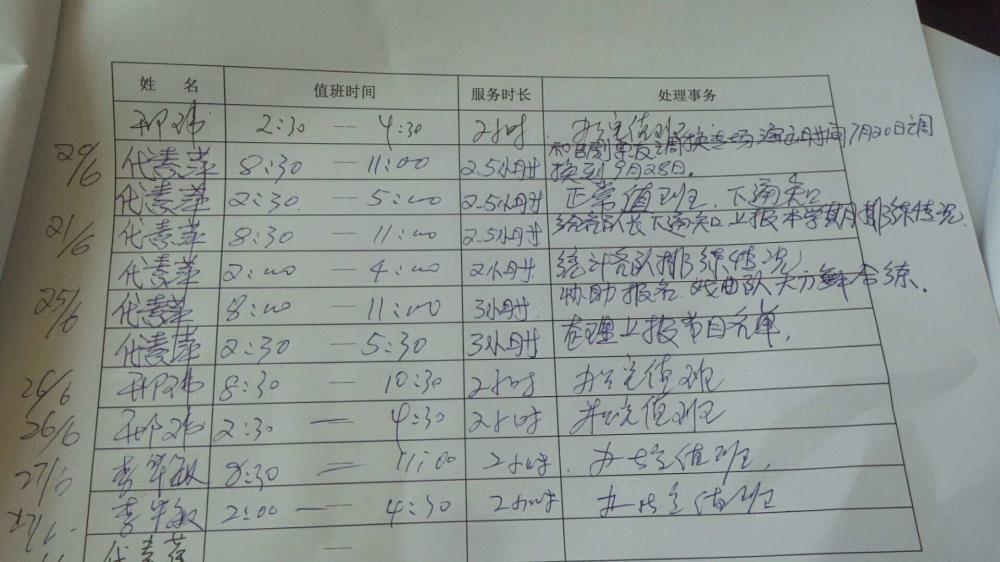 姓 名 值班时间 服务时长 处理事务
2:30 — 4:30 2小时 办公室值班
20/6 代素萍 8:30 — 11:00 2.5小时 7月20日 换到9月28日。
代素萍 2:30 — 5:00 2.5小时 正常值班、下通知
21/6 代素萍 8:30 — 11:00 2.5小时 给各队长下通知上报本学期排练情况
代素萍 2:00 — 4:00 2小时 统计各队排练情况
25/6 代素萍 8:00 — 11:00 3小时 协助报名、戏曲队 合练。
代素萍 2:30 — 5:30 3小时 整理上报节目名单,
26/6 8:30 — 10:30 2小时 办公室值班
26/6 2:30 — 4:30 2小时 办公室值班
27/6 李华敏 8:30 — 11:00 2小时 办公室值班,
27/6 李华敏 2:00 — 4:30 2小时 办公室值班
代素萍 —